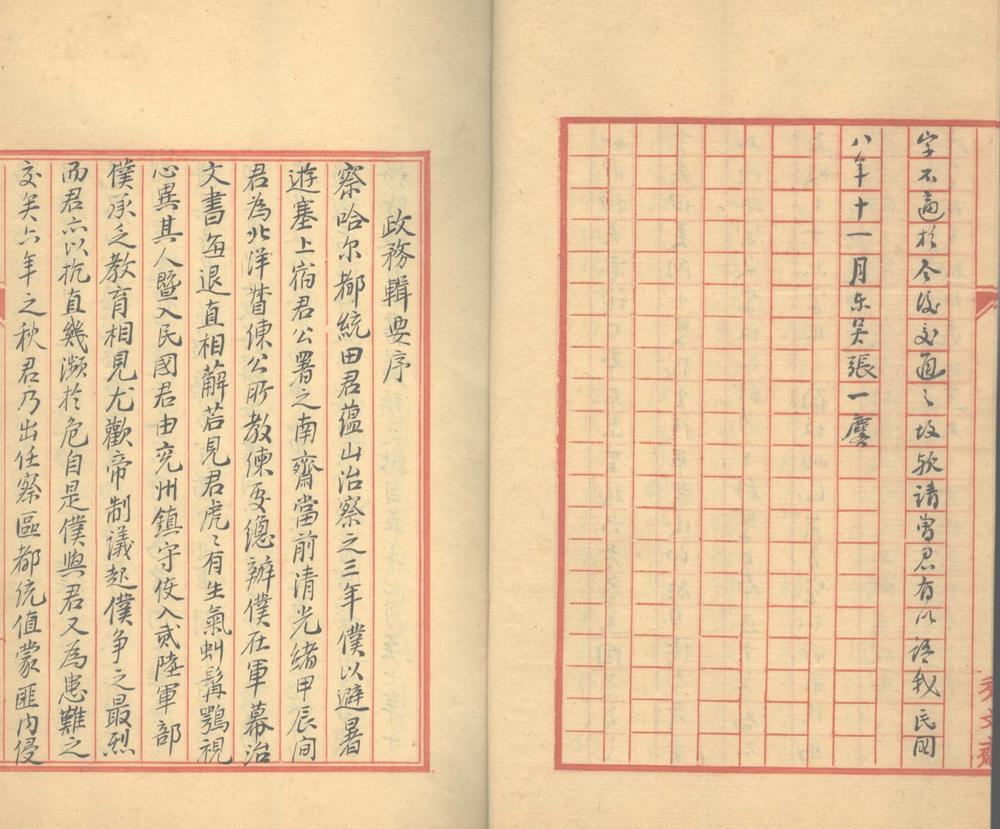 字不適於今後交通之故歟請曾君有以語我民國
八年十一月東吳張一麐
政務輯要序
察哈尔都統田君蕴山治察之三年僕以避暑
遊塞上宿君公署之南齋當前清光緒甲辰间
君為北洋督練公所教練處總辦僕在軍幕治
文書每退直相觧若見君虎〻有生氣虯髯鶚視
心異其人暨入民國君由兖州鎮守使入贰陸軍部
僕承乏教育相見尤歡帝制議起僕争之最烈
而君亦以抗直幾瀕於危自是僕與君又為患難之
交矣六年之秋君乃出任察區都统值蒙匪内侵